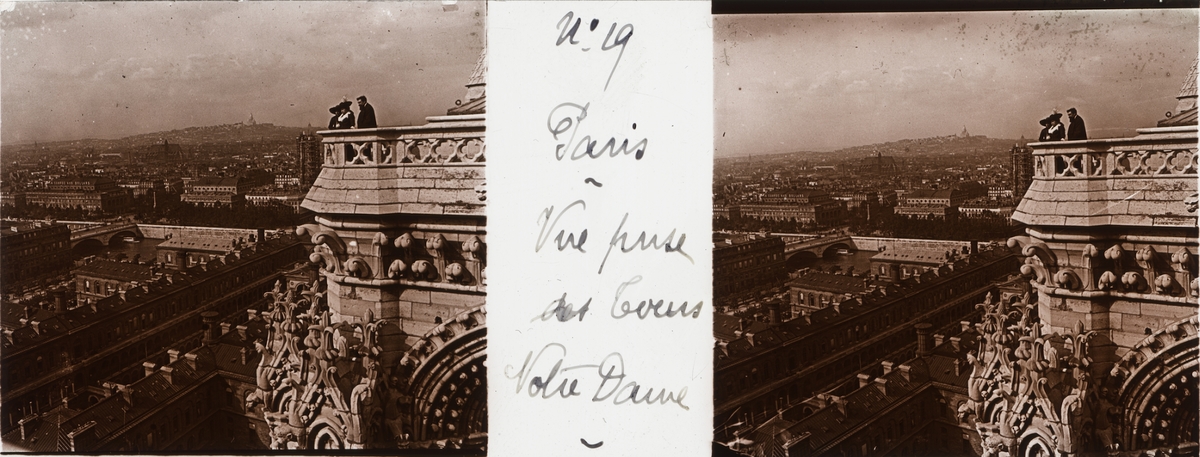 N° 19
Paris
Vue prise
des Tours
Notre Dame